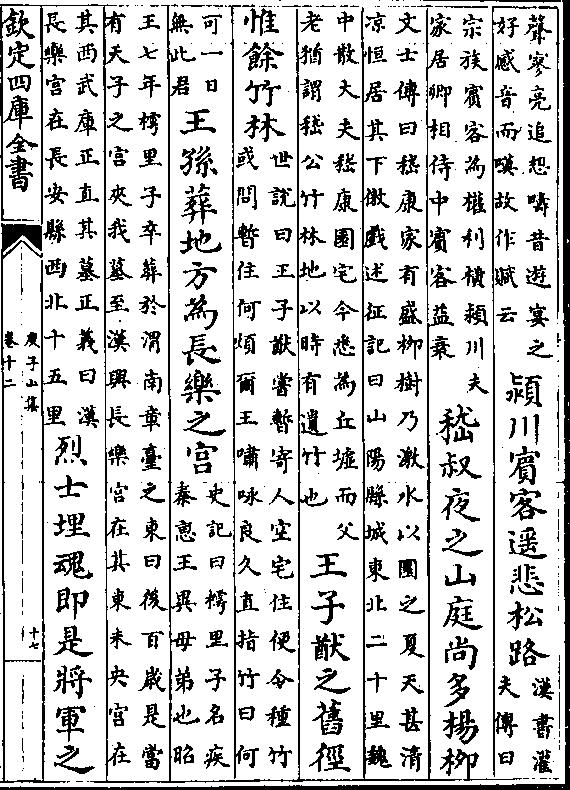 聲寥亮追想疇昔遊宴之
好感音而嘆故作賦云
潁川賓客遥悲松路
漢書灌
夫傳曰
宗族賓客為權利横潁川夫
家居卿相侍中賓客益衰
嵇叔夜之山庭尚多楊柳
文士傳曰嵇康家有盛柳樹乃激水以圜之夏天甚清
凉恒居其下傲戲述征記曰山陽縣城東北二十里魏
中散大夫嵇康園宅今悉為丘墟而父
老猶謂嵇公竹林地以時有遺竹也
王子猷之舊徑
惟餘竹林
世說曰王子猷嘗暫寄人空宅住便令種竹
或問暫住何煩爾王嘯咏良久直指竹曰何
可一日
無此君
王孫葬地方為長樂之宫
史記曰樗里子名疾
秦惠王異母弟也昭
王七年樗里子卒葬於渭南章臺之東曰後百歲是當
有天子之宫夾我墓至漢興長樂宫在其東未央宫在
其西武庫正直其墓正義曰漢
長樂宫在長安縣西北十五里
烈士埋魂即是將軍之
欽定四庫全書
庾子山集
卷十二
十七